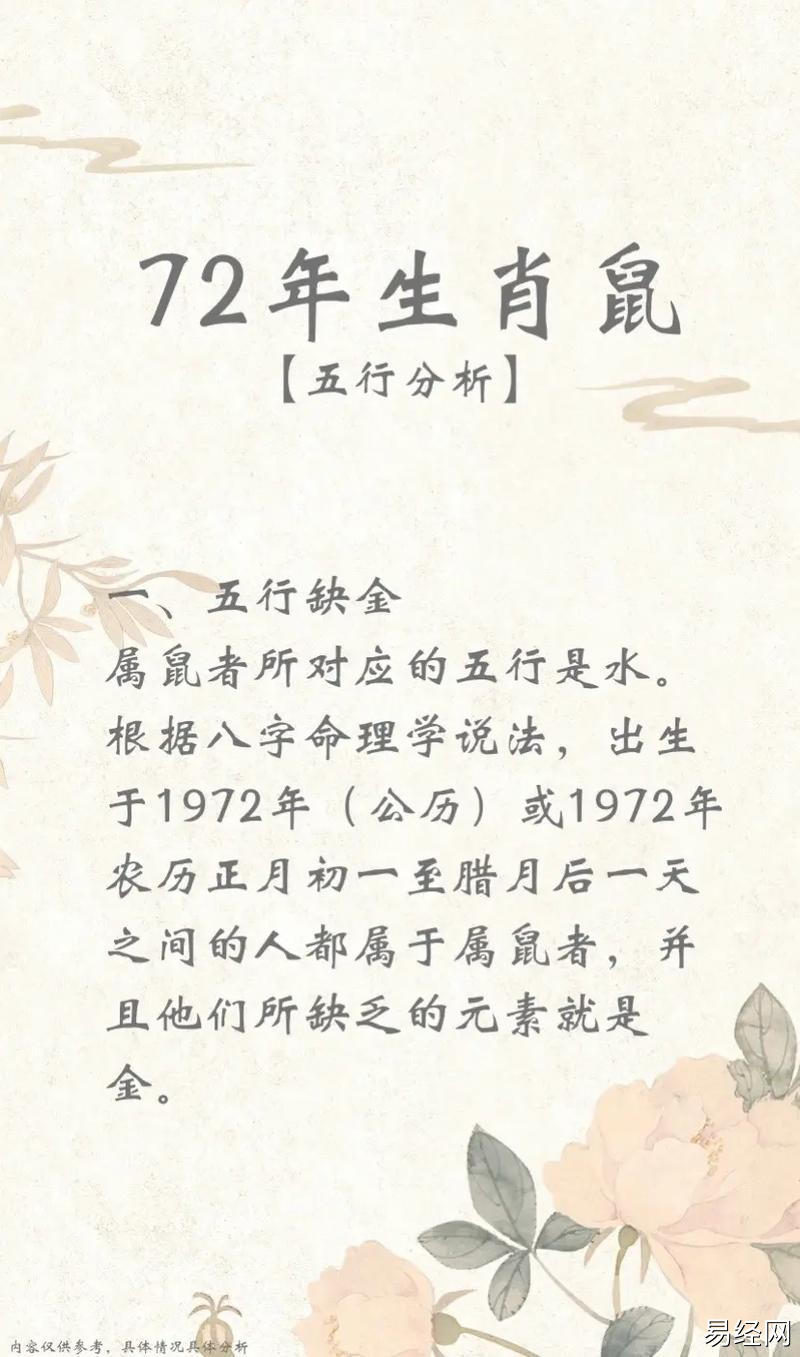 72年生肖鼠
【五行分析】
一、五行缺金
属鼠者所对应的五行是水。
根据八字命理学说法，出生
于1972年（公历）或1972年
农历正月初一至腊月后一天
之间的人都属于属鼠者，并
且他们所缺乏的元素就是
金。
内容仅供参考，具体情况具体分析
易经网